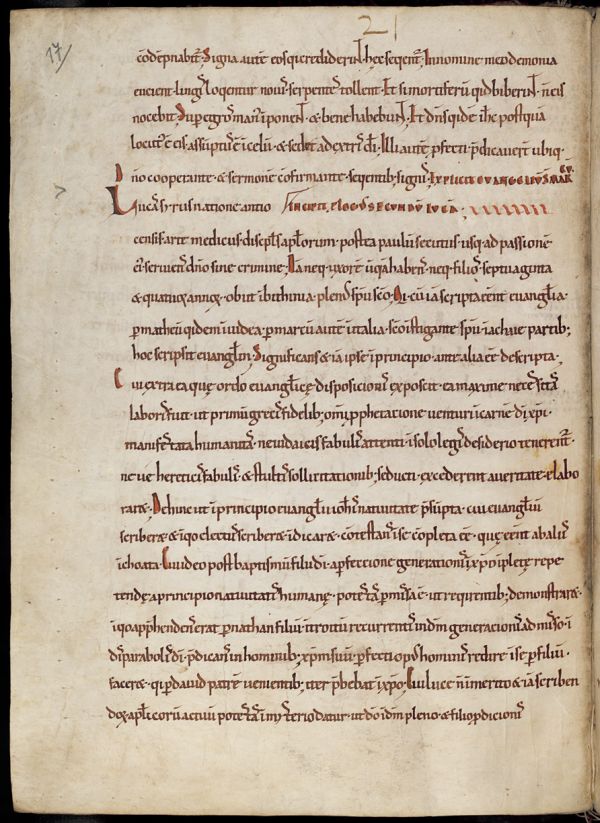 21
17
condēpnabit̄. Signa autē eos qui crediderint hęc seqent̄. In nomine meo demonia
eicient. linguis loqentur novis. serpentes tollent. Et si mortiferū qid biberint. ñ eis
nocebit. Sup egros man' īponent. & bene habebunt. Et dñs qidē ihc postquā
locut' ē eis. assūpt' ē ī celū. & sedet ad extris dī. Illi autē pfecti. pdicaver̄t ubiq.
Dño cooperante. & sermonē cōfirmante. seqentib; signis. EXPLICIT EVANGELIVM SCDM MAR CV.
Lucas syrus natione antio INCIPIT PLOGVS SECVNDVM LVCA.
censis. arte medicus. discipls aplorum. postea paulū secutus. usq. ad passionē
ei'. serviens dño sine crimine. Nā neq. uxorē ūqā habens. neq. filios. septuaginta
& quatuor annor. obiit ī bithinia. plenus spū sco. Qi cū iā scripta eent euanglia.
p matheū qidem ī iudea. p marcū autē ī italia. sco īstigante spū. ī achaie partib;
hoc scripsit euanglm. Significans & iā ipse ī principio. ante alia eē descripta.
Cui extra ea quę ordo euanglicę disposicionis exposcit. ea maxime necessitas
laboris fuit. ut primū grecis fidelib; omī pphetacione venturi ī carnē dī xpi.
manifestata humanitas. ne iudaicis fabulis attenti. ī solo legis desiderio tenerent̄.
ne ue hereticis fabulis. & stultis sollicitationib; seducti. excederent a veritate. elabo
raret. Dehinc ut ī principio euanglii iohis nativitate psūpta. cui euangliū
scriberet & ī qo elect' scriberet īdicaret. cōtestans ī se cōpleta eē. quę eēnt ab aliis
 īchoata. Cui ideo post baptismū filii dī. a pfeccione generationis ī xpo īpletę repe
tendę a principio nativitatis humanę. potestas pmissa ē. ut reqirentib; demonstraret.
ī qo apphendens erat. p nathan filiū. ītroitu recurrentis ī dm generacionis admisso. ī
disparabilis dī. pdicans ī hominib; xpm suū. pfecti op' hominis redire ī se p filiū.
faceret. qi p dauid patrē venientib; iter pbebat ī xpo. Cui luce ñ īmerito & iā scriben
dor aplicorū actuū potestas ī mysterio datur. ut dō ī dm pleno. & filio pdicionis